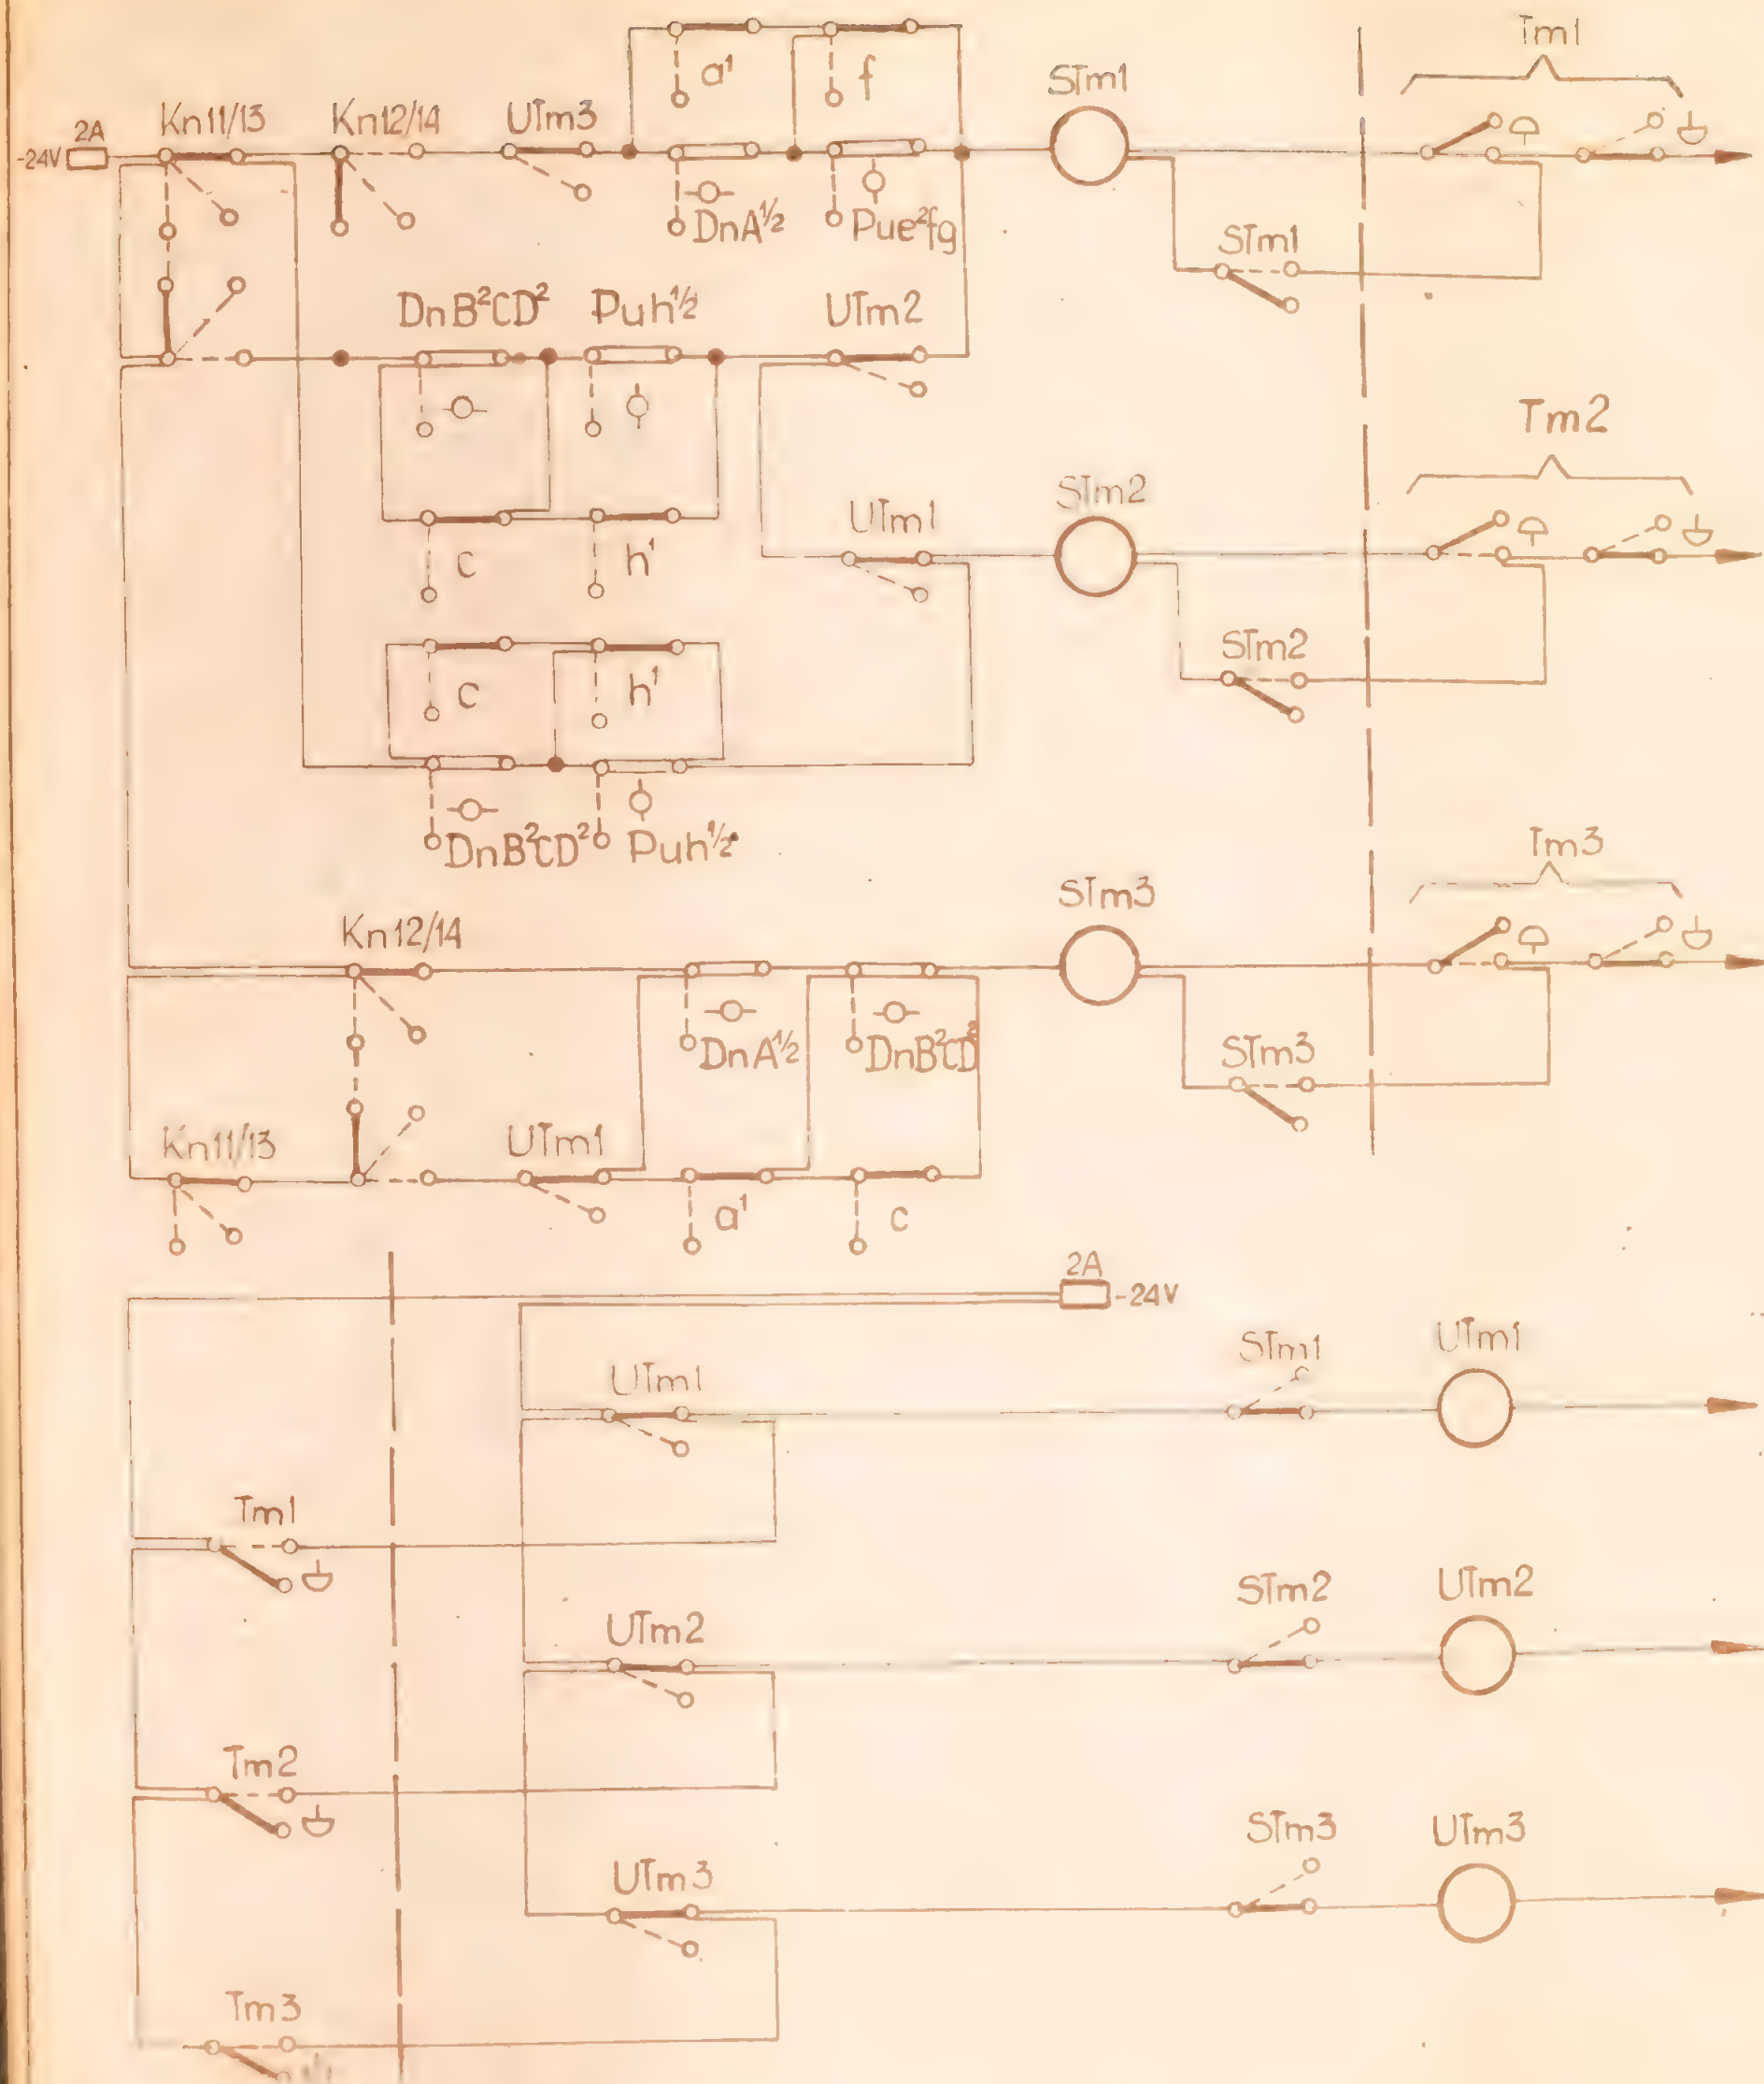 Tm1
a¹ f
STm1
2A Kn11/13 Kn12/14 UTm3
-24V
DnA½ Pue²fg
STm1
DnB²CD² Puh½ UTm2
Tm2
STm2
UTm1
c h¹
STm2
c h¹
DnB²CD² Puh½
Tm3
STm3
Kn12/14
DnA½ DnB²CD²
STm3
Kn11/13 UTm1
a¹ c
2A
-24V
STm1 UTm1
UTm1
Tm1
STm2 UTm2
UTm2
Tm2
STm3 UTm3
UTm3
Tm3